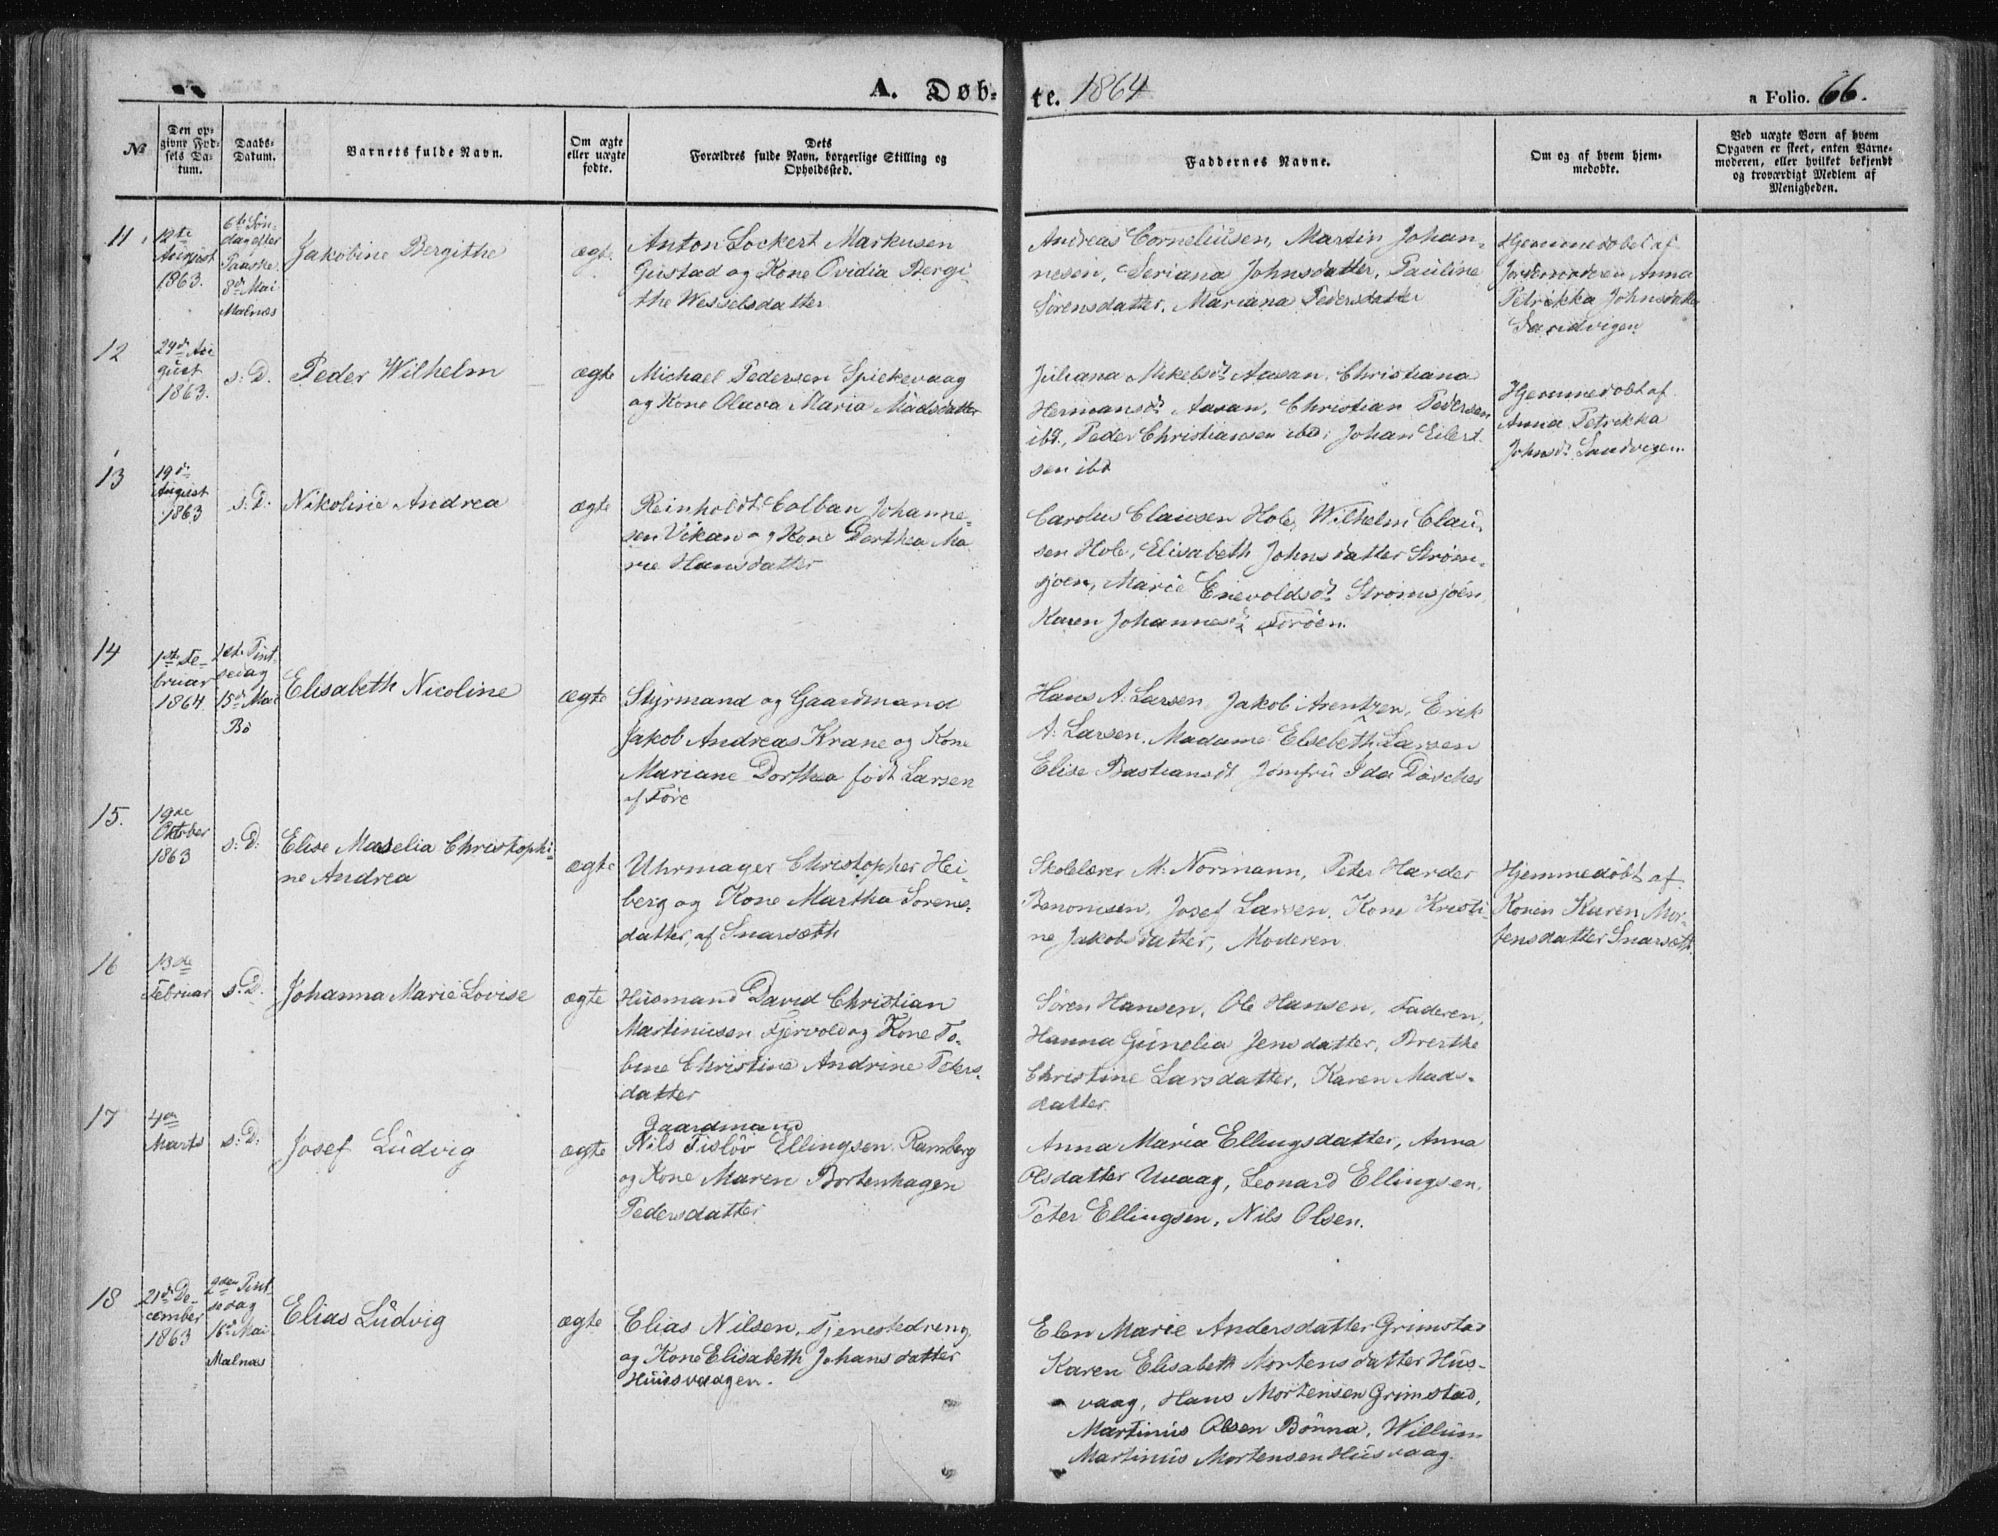 A. Døb-
te. 1864
a Folio. 66.
№
Den op-
givne Fød-
sels Da-
tum.
Daabs-
Datum.
Barnets fulde Navn.
Om ægte
eller uægte
fødte.
Dets
Forældres fulde Navn, borgerlige Stilling og
Opholdssted.
Faddernes Navne.
Om og af hvem hjem-
medøbte.
Ved uægte Børn af hvem
Opgaven er skeet, enten Barne-
moderen, eller hvilket bekjendt
og troværdigt Medlem af
Menigheden.
11.
12te
August
1863.
6te Søn-
dag efter
Paaske
8de Mai
Malnæs
Jakobine Bergithe
ægte
Anton Lockert Markusen
Gustad og Kone Ovidia Bergi-
the Wesselsdatter
Andreas Corneliusen, Martin Johan-
nesen, Seriana Johnsdatter, Pauline
Sørensdatter, Mariana Pedersdatter
Hjemmedøbt af
Jordemoderen Anna
Petrikka Johnsdatter
Sandvigen
12
24de Au
gust
1863.
s: D.
Peder Wilhelm
ægte
Michael Pedersen Spiekevaag
og Kone Olava Maria Madsdatter
Juliana Mikelsdr Aasan, Christiana
Hermansdr Aasan, Christian Pedersen
ibd., Peder Christiansen ibd, Johan Eilert
sen ibd
Hjemmedøbt af
Anna Petrikka
Johnsdr Sandvigen.
13
19de
August
1863
s: D.
Nikoline Andrea
ægte
Reinholdt Colban Johanne-
sen Vikan og Kone Dorthea Ma
rie Hansdatter
Carolus Clausen Hole, Wilhelm Clau-
sen Hole, Elisabeth Johnsdatter Strøm-
sjøen, Marie Enevoldsdr Strømsjøen
Karen Johannesdr Førøen.
14
1ste Fe-
bruar
1864
1ste Pint
sedag
15de Mai
Bø
Elisabeth Nicoline
ægte
Styrmand og Gaardmand
Jakob Andreas Krane og Kone
Mariane Dorthea født Larsen
af Føre
Hans A. Larsen, Jakob Arentzen, Erik
A. Larsen, Madame Elsebeth Larsen
Elise Bastiansdr Jomfru Ida Døsches
15.
19de
Oktober
1863
s: D:
Elise Maselia Christophi-
ne Andrea
ægte
Uhrmager Christopher Hei-
berg og Kone Martha Sørens-
datter, af Snarsæth
Skolelærer M. Normann, Peter Harder
Benonisen, Josef Larsen, Kone Kristi
ne Jakobsdatter, Moderen
Hjemmedøbt af
Konen Karen Mor-
tensdatter Snarsæth.
16
13de
Februar
s: D.
Johanna Marie Lovise
ægte
Husmand David Christian
Martinusen Fjervold og Kone To-
bine Christine Andrine Peters-
datter
Søren Hansen, Ole Hansen, Faderen,
Hanna Gunelia Jensdatter, Brethe
Christine Larsdatter, Karen Mads-
datter.
17
4de
Marts
s: D:
Josef Ludvig
ægte
Gaardmand
Nils Tisløv Ellingsen Ramberg
og Kone Maren Bortenhagen
Pedersdatter
Anna Maria Ellingsdatter, Anna
Olsdatter Uvaag, Leonard Ellingsen,
Peter Ellingsen, Nils Olsen.
18
21de De-
cember
1863
2den Pint-
sedag
16de Mai
Malnæs
Elias Ludvig
ægte
Elias Nilsen, Tjenestedreng,
og Kone Elisabeth Johansdatter
Huusvaagen.
Elen Marie Andersdatter Grimstad
Karen Elisabeth Mortensdatter Hus-
vaag, Hans Mortensen Grimstad,
Martinus Olsen Bønna, Willum
Martinus Mortensen Husvaag.